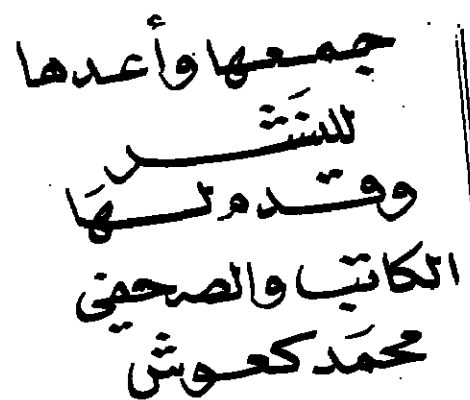 جمعها وأعدها
للنشر
وقدم لها
الكاتب والصحفي
محمد كعوش